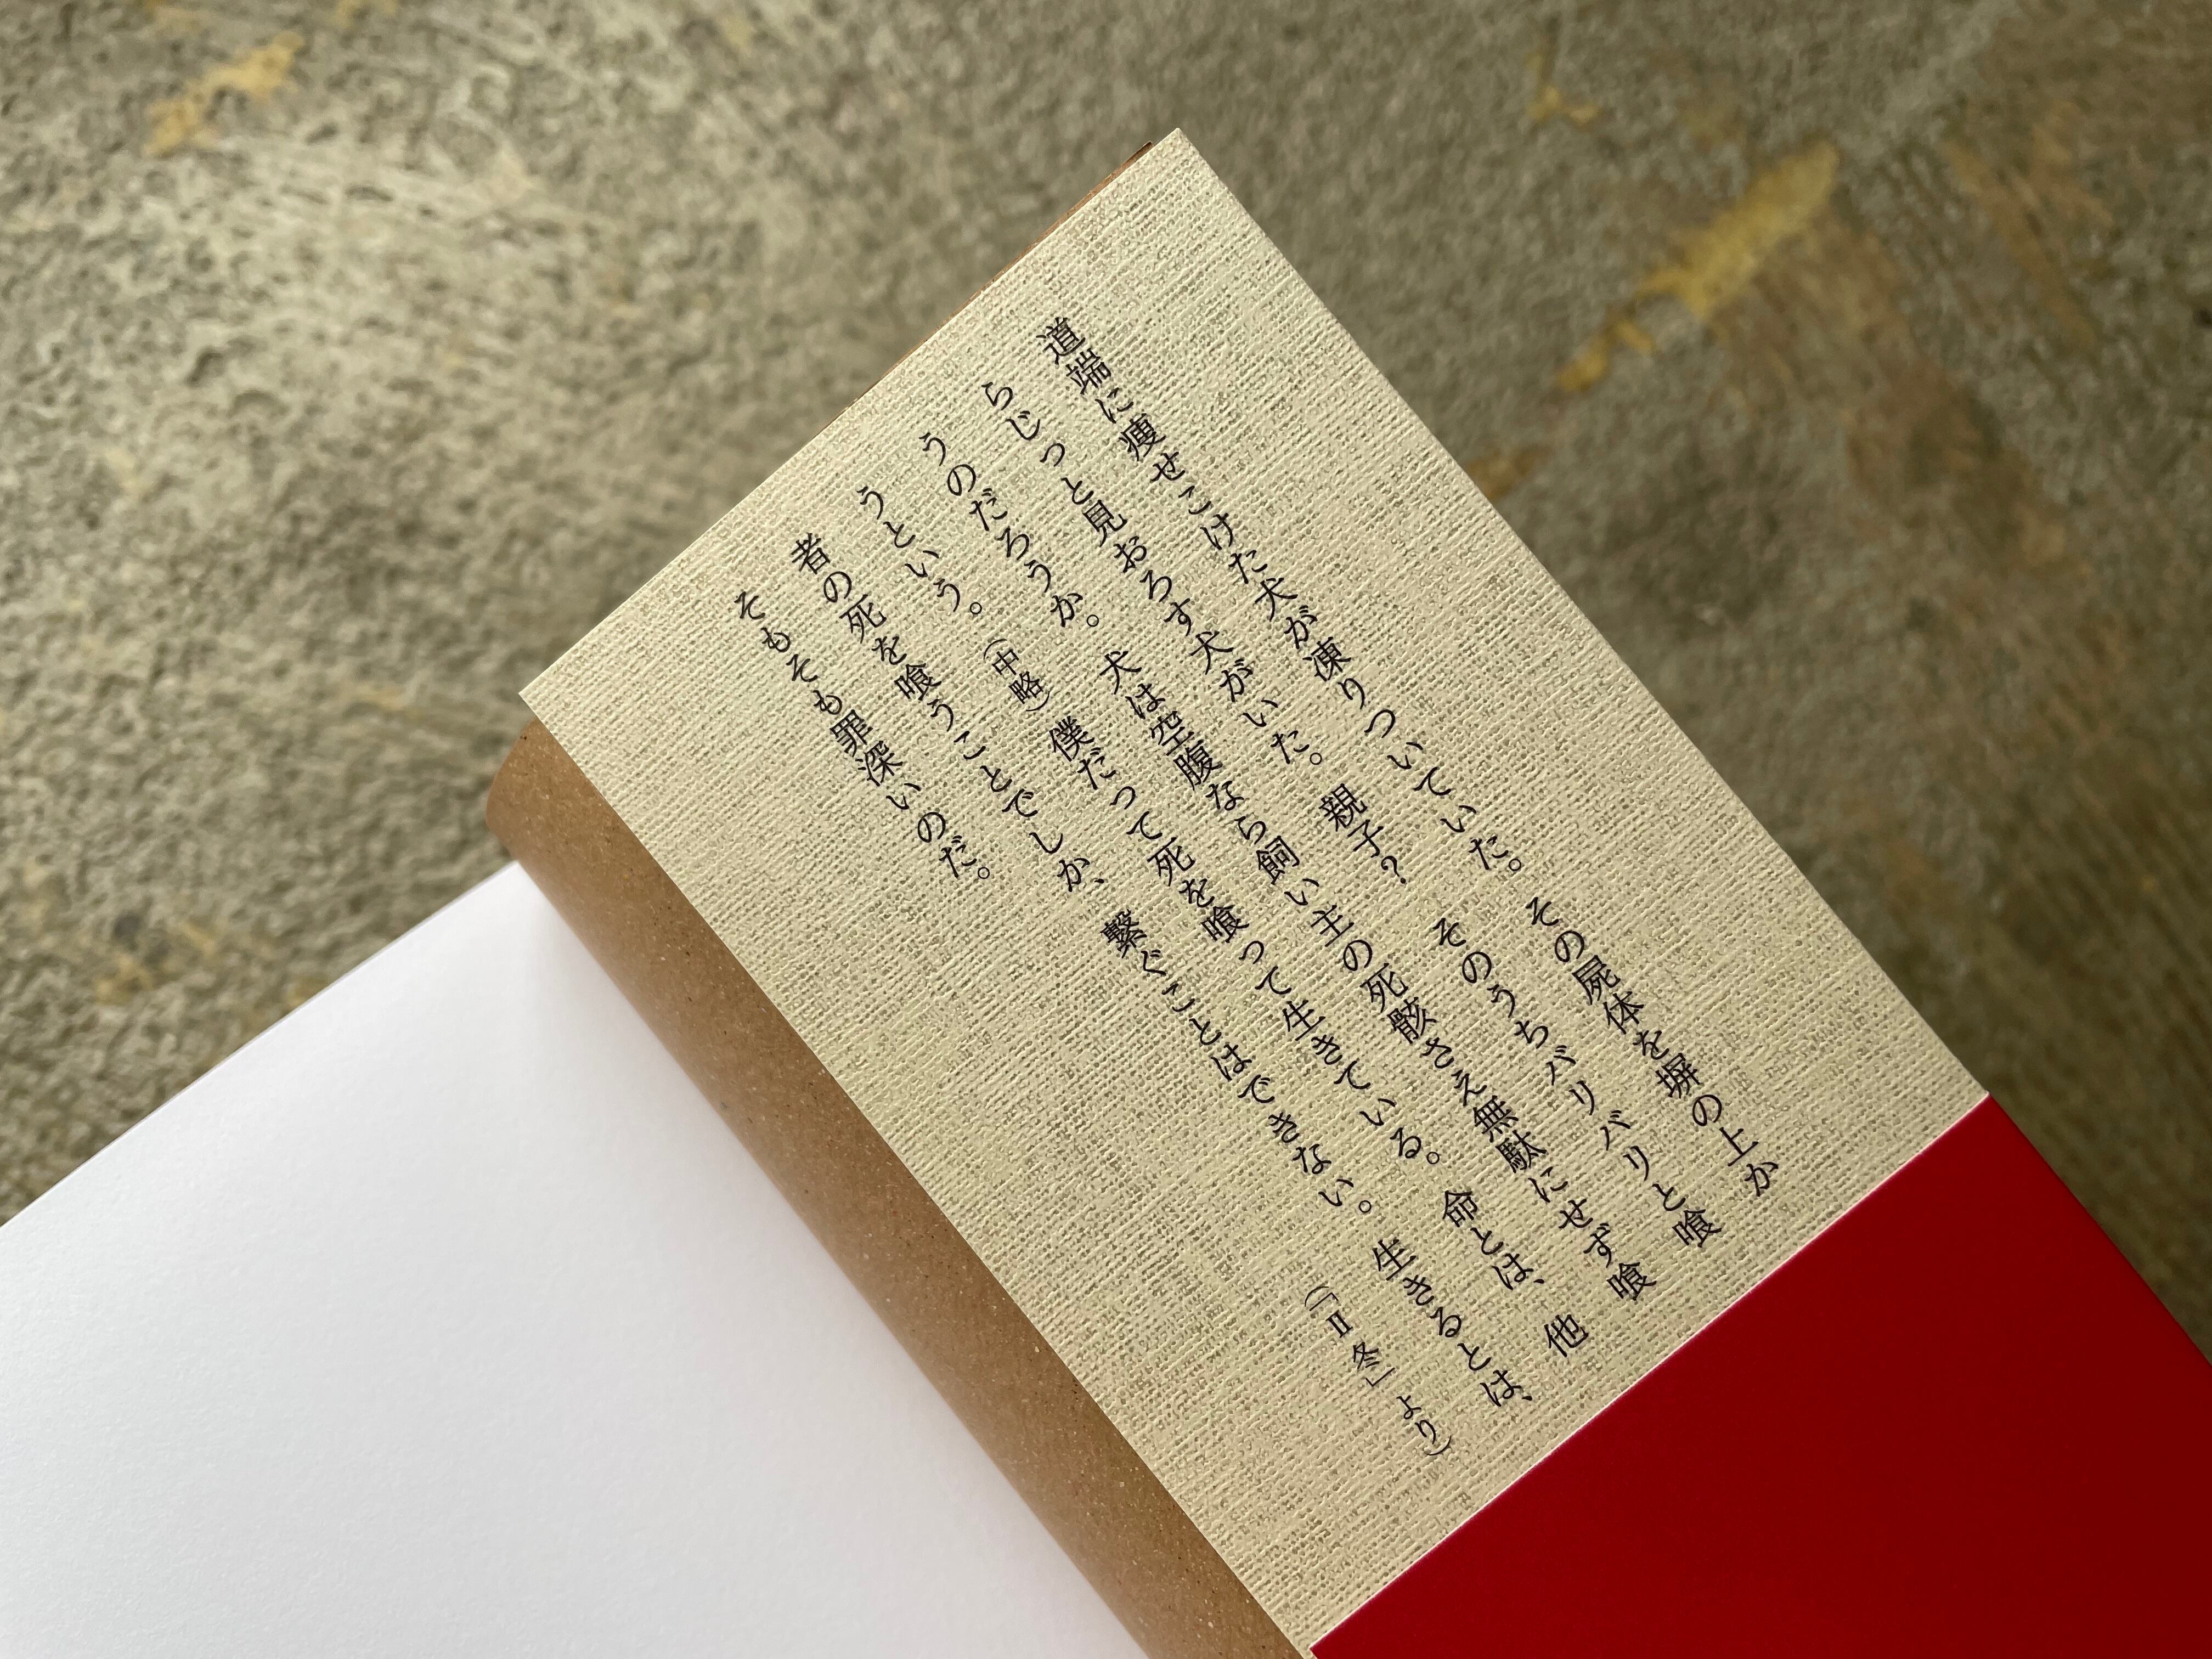 道端に痩せこけた犬が凍りついていた。その屍体を塀の上か
らじっと見おろす犬がいた。親子？　そのうちバリバリと喰
うのだろうか。犬は空腹なら飼い主の死骸さえ無駄にせず喰
うという。（中略）僕だって死を喰って生きている。命とは、他
者の死を喰うことでしか、繋ぐことはできない。生きるとは、
そもそも罪深いのだ。　（「Ⅱ 冬」より）